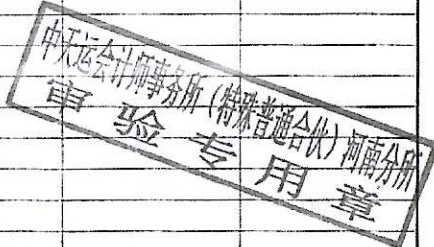 中天运会计师事务所（特殊普通合伙）河南分所
审验专用章